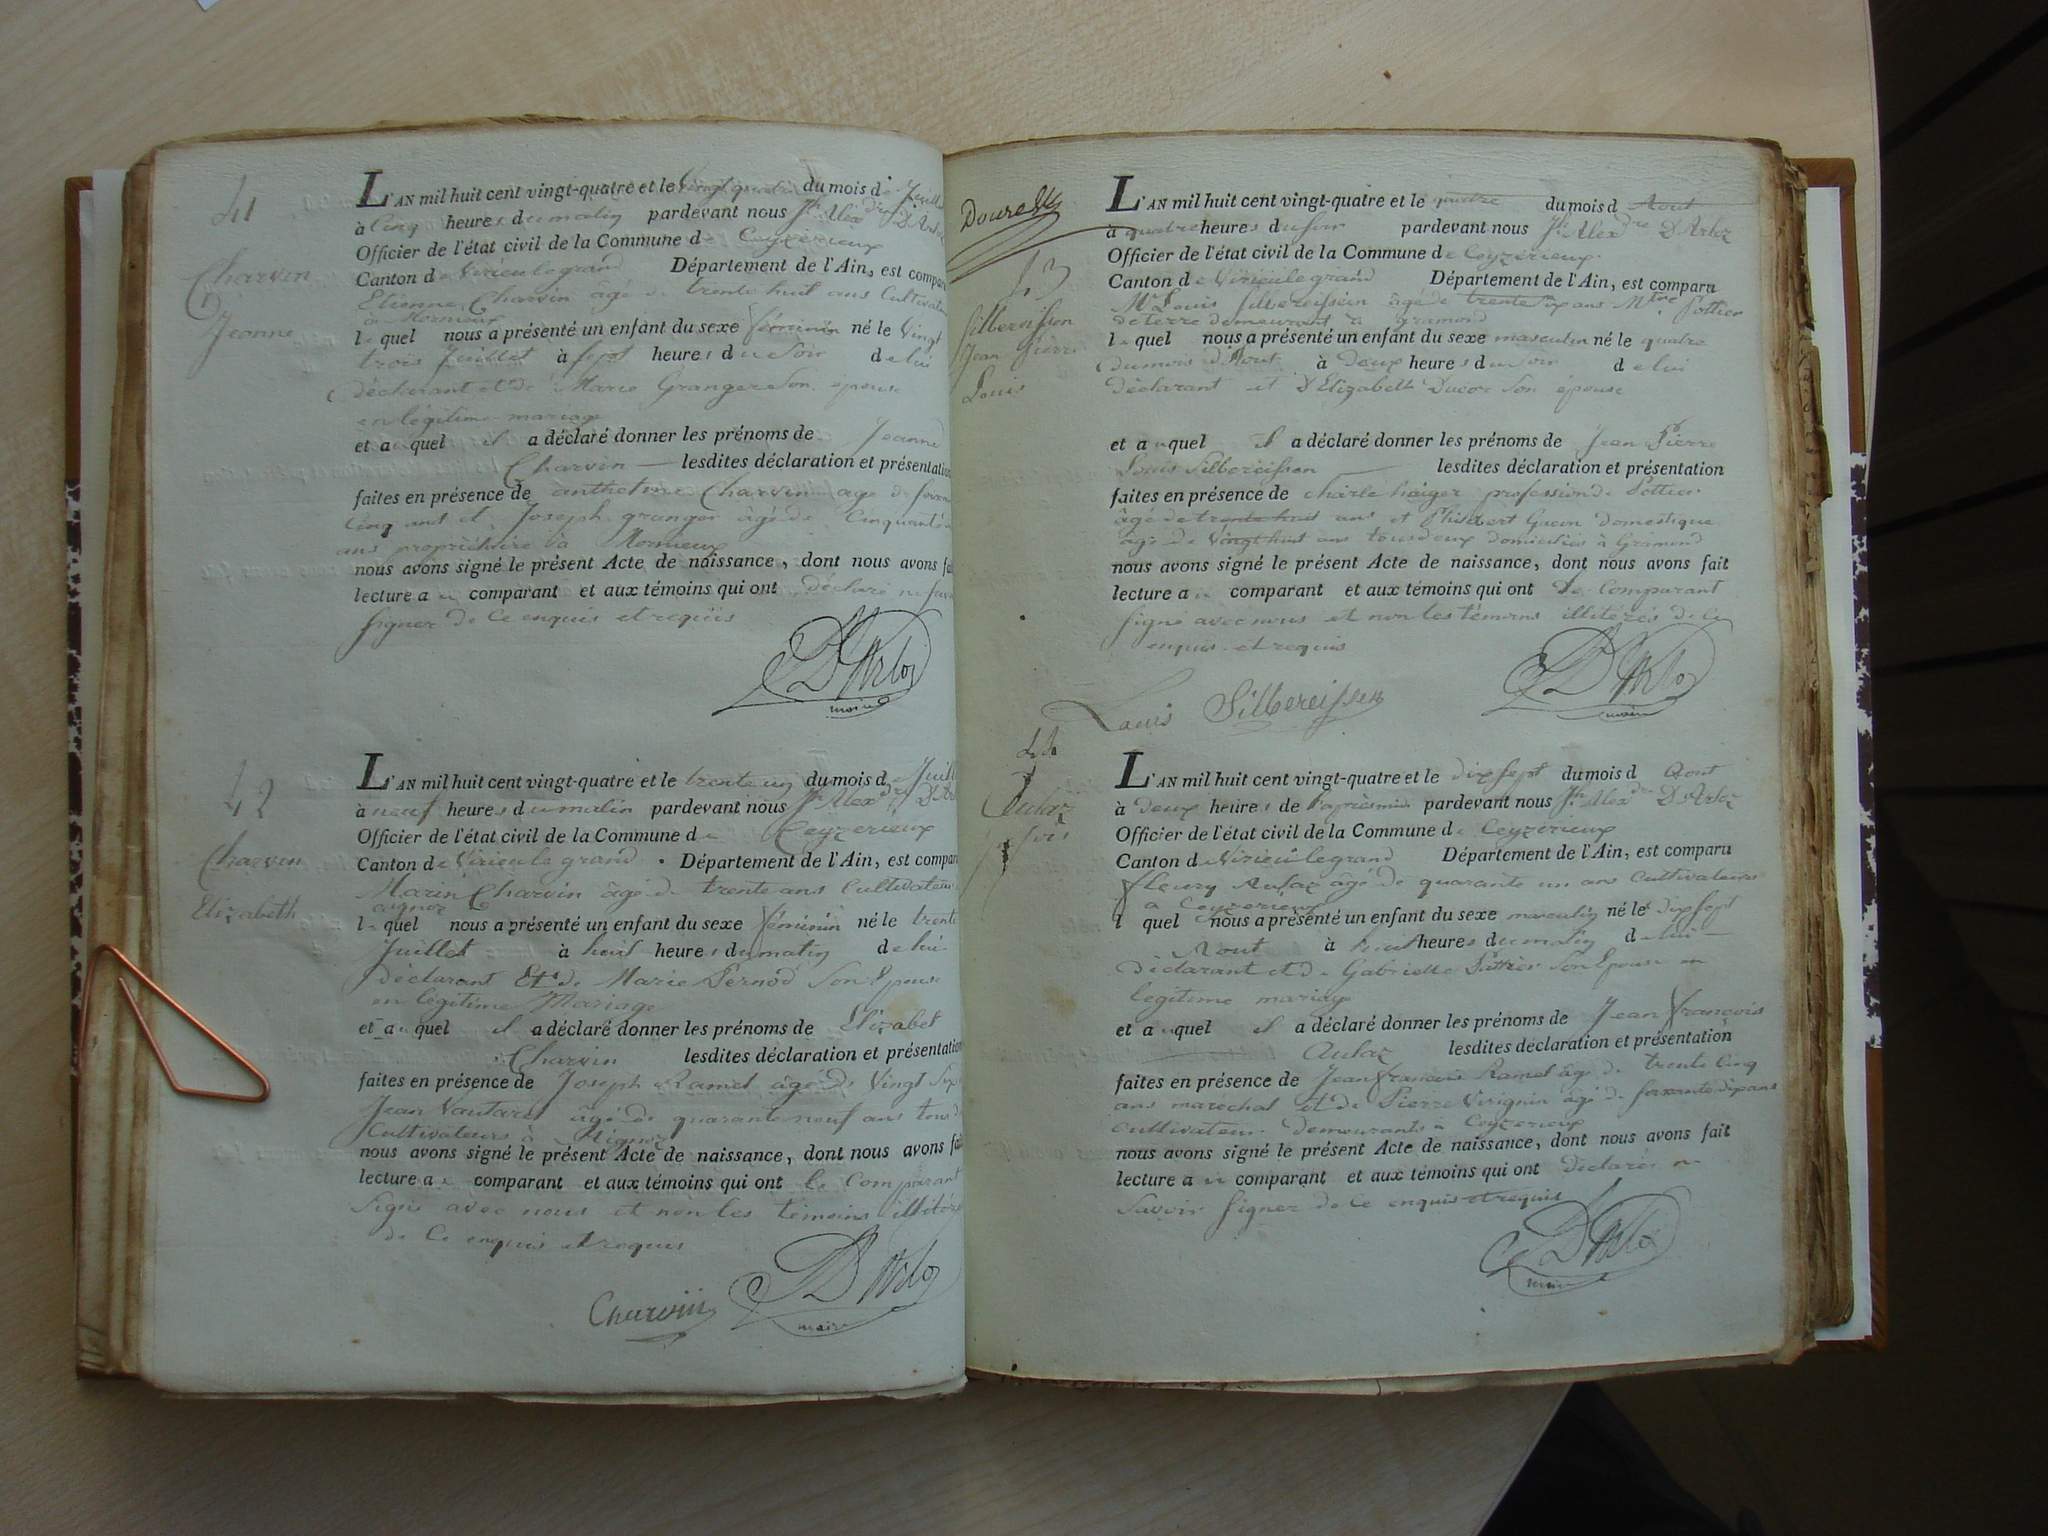 41
Charvin
Jeanne
L'AN mil huit cent vingt-quatre et le vingt quatre du mois de Juillet
à cinq heures du matin pardevant nous Jh Alexdre D'Arloz
Officier de l'état civil de la Commune de Ceyzerieux
Canton de Virieulegrand Département de l'Ain, est comparu
Etienne Charvin âgé de trente huit ans Cultivateur
à
le quel nous a présenté un enfant du sexe féminin né le vingt
trois Juillet à sept heures du soir de lui
déclarant et de Marie Granger son épouse
en légitime mariage
et auquel il a déclaré donner les prénoms de Jeanne
Charvin lesdites déclaration et présentation
faites en présence de anthelme Charvin age de
cinq ans et Joseph granger âgé de Cinquante
ans propriétaire à
nous avons signé le présent Acte de naissance, dont nous avons fait
lecture au comparant et aux témoins qui ont déclaré ne savoir
signer de ce enquis et requis
D'Arloz
maire
42
Charvin
Elizabeth
L'AN mil huit cent vingt-quatre et le trente un du mois de Juillet
à neuf heures du matin pardevant nous Jh Alexdre D'Arloz
Officier de l'état civil de la Commune de Ceyzerieux
Canton de Virieu le grand Département de l'Ain, est comparu
Marin Charvin âgé de trente ans Cultivateur
le quel nous a présenté un enfant du sexe féminin né le trente
Juillet à huit heures du matin de lui
déclarant Et de Marie Pernod son Epouse
en légitime Mariage
et auquel il a déclaré donner les prénoms de Elizabet
Charvin lesdites déclaration et présentation
faites en présence de Joseph Ramel âgé de Vingt Sept
Jean Vautaret âgé de quarante neuf ans tous
Cultivateurs à
nous avons signé le présent Acte de naissance, dont nous avons fait
lecture au comparant et aux témoins qui ont le Comparant
signé avec nous et non les témoins illitérés
de Ce enquis et requis
Charvin
D'Arloz
maire
43
Silbereissen
Jean Pierre
Louis
L'AN mil huit cent vingt-quatre et le quatre du mois d Aout
à quatre heures du soir pardevant nous Jh Alexdre D'Arloz
Officier de l'état civil de la Commune de Ceyzerieux
Canton de Virieulegrand Département de l'Ain, est comparu
Mr Louis Silbereissen âgé de trente six ans Mtre Pottier
de terre demeurant à gramond
le quel nous a présenté un enfant du sexe masculin né le quatre
du mois d'Aout à Deux heures du soir de lui
déclarant et D'Elizabeth Ducor son épouse
et auquel il a déclaré donner les prénoms de Jean Pierre
Louis Silbereissen lesdites déclaration et présentation
faites en présence de charle haiger profession de Pottier
âgé de trente huit ans et Philibert Gueon Domestique
âgé de vingt huit ans tous deux domiciliés à Gramond
nous avons signé le présent Acte de naissance, dont nous avons fait
lecture au comparant et aux témoins qui ont Le Comparant
signé avec nous et non les témoins illitérés de Ce
enquis et requis
Louis Silbereissen
D'Arloz
maire
44
Aulaz
L'AN mil huit cent vingt-quatre et le dix sept du mois d Aout
à deux heures de l'apresmidi pardevant nous Jh Alexdre D'Arloz
Officier de l'état civil de la Commune de Ceyzerieux
Canton de Virieu legrand Département de l'Ain, est comparu
fleury Aulaz âgé de quarante un ans Cultivateur
à Ceyzerieux
l quel nous a présenté un enfant du sexe masculin né le dix sept
Aout à huit heures du matin de lui
déclarant et de Gabrielle son Epouse en
légitime mariage
et auquel il a déclaré donner les prénoms de Jean françois
Aulaz lesdites déclaration et présentation
faites en présence de Jean françois Ramel âgé de trente Cinq
ans marechal et de Pierre Virignin âgé de soixante dix ans
cultivateur demeurants à Ceyzerieux
nous avons signé le présent Acte de naissance, dont nous avons fait
lecture au comparant et aux témoins qui ont Déclarés ne
Savoir signer de Ce enquis et requis
D'Arloz
maire